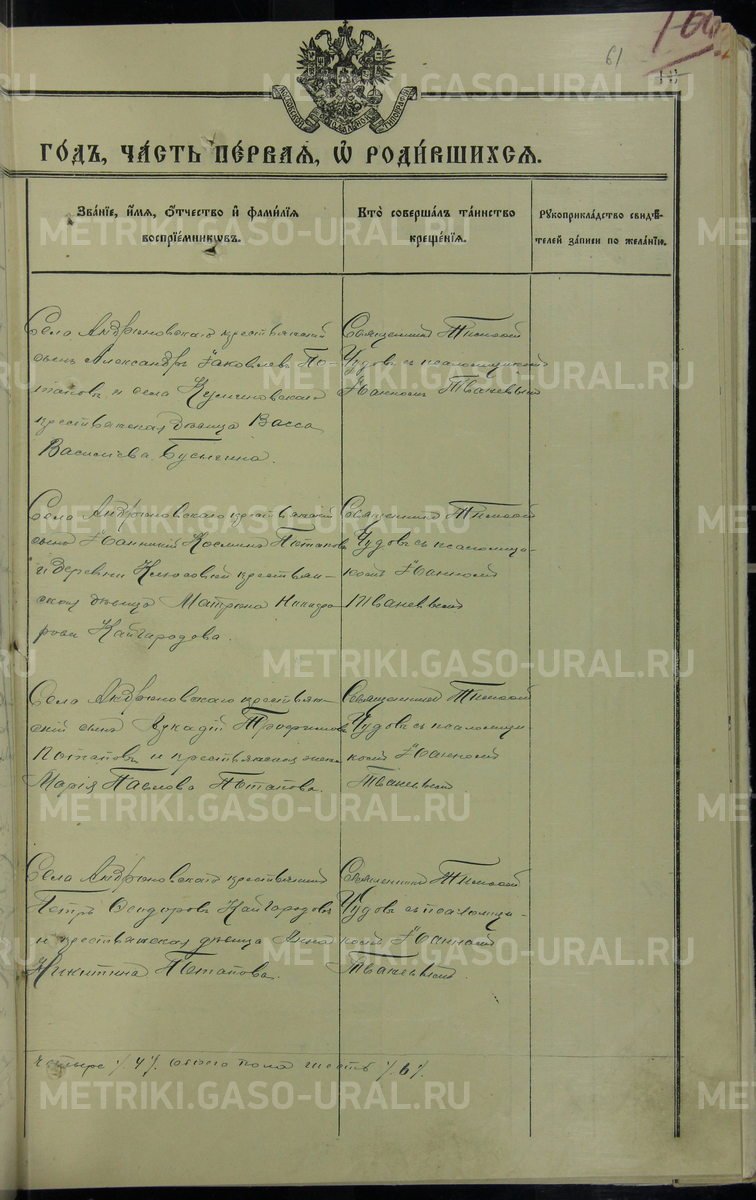 61
10
ГОДЪ, ЧАСТЬ ПЕРВАЯ, Ѡ РОДИВШИХСЯ.
Званіе, имя, отчество и фамилія воспріемниковъ.
Кто совершалъ таинство крещенія.
Рукоприкладство свидѣтелей записи по желанію.
Села Андрюновскаго крестьянскій
сынъ Александръ Іаковлевъ По-
таповъ и села
крестьянская дѣвица Васса
Василіева
Священникъ Тимофей
Чудовъ съ псаломщикомъ
Іоанномъ
Села Андрюновскаго крестьянскій
сынъ Іоанникій Косминъ Потаповъ
и деревни крестьян-
ская дѣвица Матрона Никано-
рова Кайгородова.
Священникъ Тимофей
Чудовъ съ псаломщи-
комъ Іоанномъ
Села Андрюновскаго крестьян-
скій сынъ Аркадій Трофимовъ
Потаповъ и крестьянская жена
Марія Павлова Потапова.
Священникъ Тимофей
Чудовъ съ псаломщи-
комъ Іоанномъ
Села Андрюновскаго крестьянинъ
Петръ Ѳеодоровъ Кайгородовъ
и крестьянская дѣвица Анна
Никитина Потапова.
Священникъ Тимофей
Чудовъ съ псаломщи-
комъ Іоанномъ
четыре /4/. обоего пола шесть /6/.
METRIKI.GASO-URAL.RU